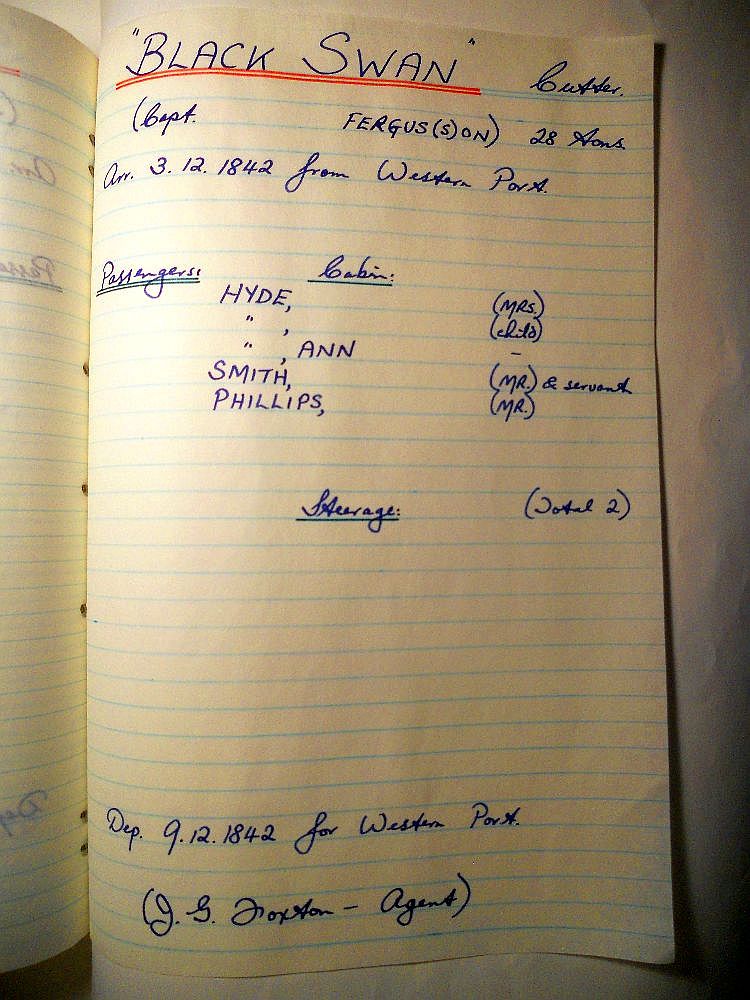 "BLACK SWAN" Cutter.
(Capt. FERGUS(S)ON) 28 tons.
Arr. 3.12.1842 from Western Port.
Passengers: Cabin:
HYDE, (MRS.)
" , (child)
" , ANN –
SMITH, (MR.) & servant
PHILLIPS, (MR.)
Steerage: (Total 2)
Dep. 9.12.1842 for Western Port.
(J. G. Foxton – Agent)